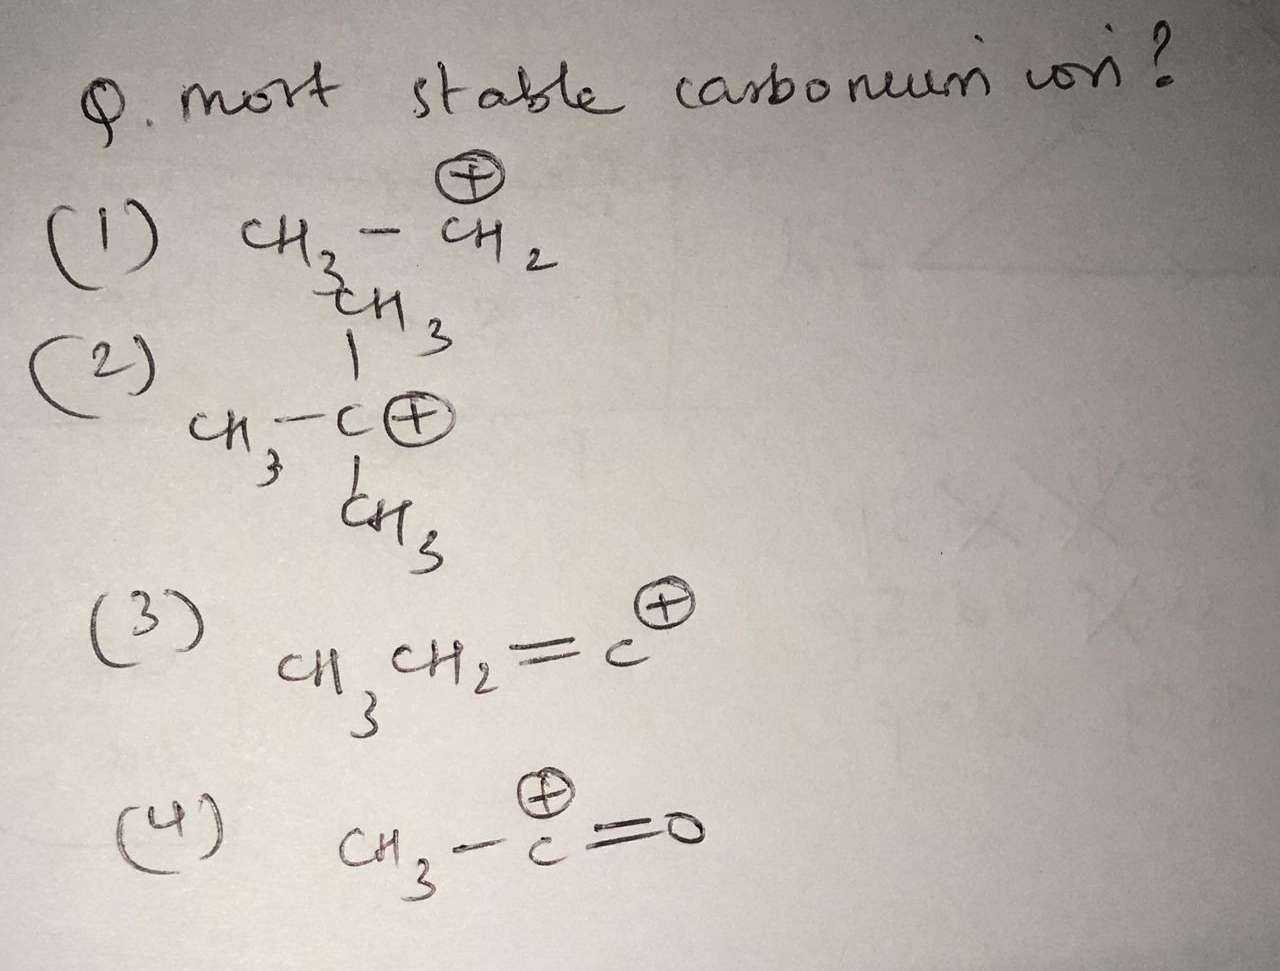 Q. most stable carbonium ion?
(1) CH3 - CH2 ⊕
(2) CH3
|
CH3 - C ⊕
|
CH3
(3) CH3 CH2 = C ⊕
(4) CH3 - C ⊕ = O